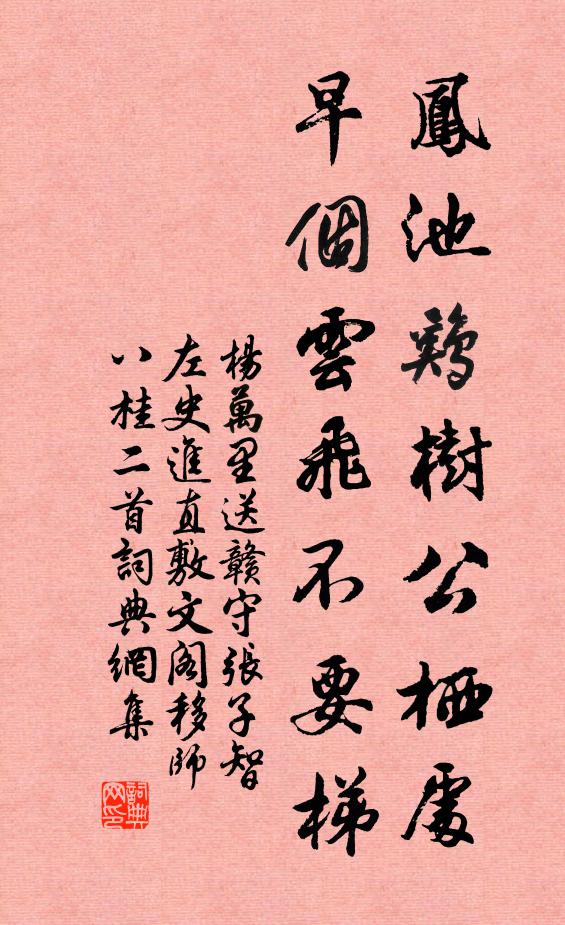 鳳池鷄樹公栖處
早個雲飛不要梯
楊萬里送贛守張子智
左史進直敷文閣移師
八桂二首詞典網集
詞典网印